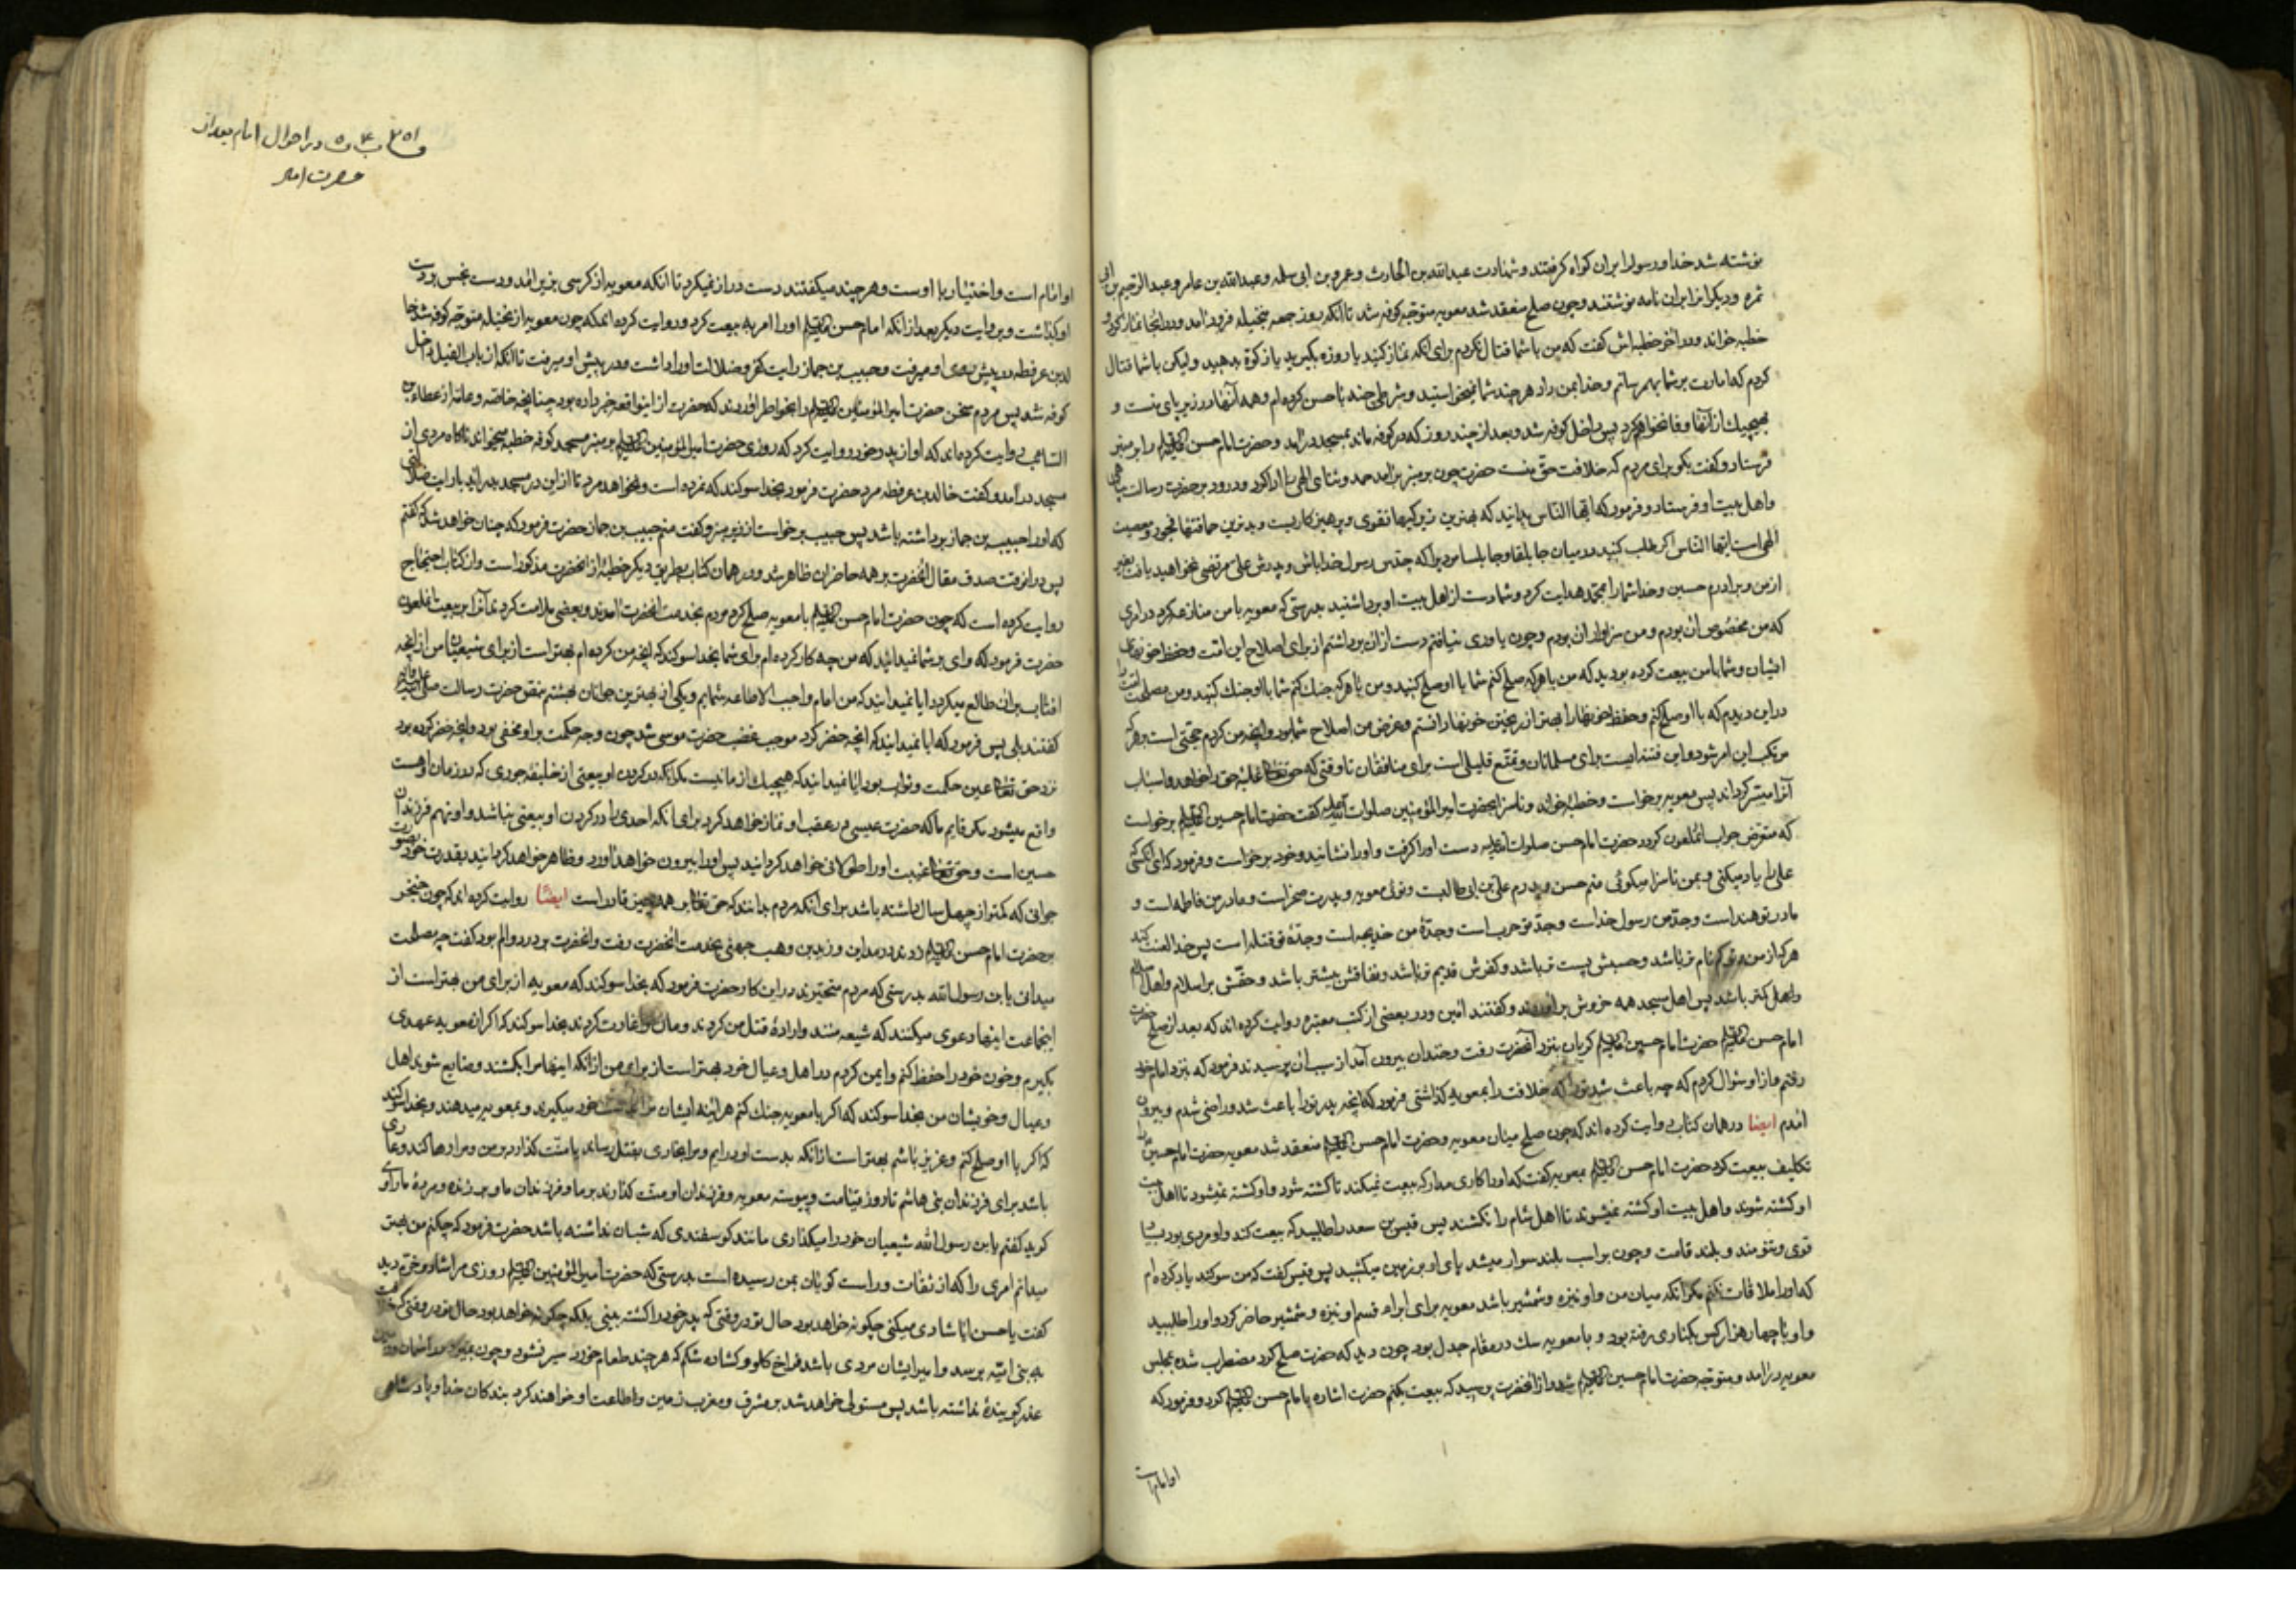 نوشته شد خدا و رسول را بران کواه کرفتند و شهادت عبدالله بن الحارث و عمرو بن ابی سلمه و عبدالله بن عامر و عبدالرحیم بن ابی
ثمره و دیکران را بران نامه نوشتند و چون صلح منعقد شد معویه متوجه کوفه شد تا انکه روز جمعه بنخیله فرود آمد و درانجا نماز کرد و
خطبه خواند و در اخر خطبه‌اش کفت که من با شما قتال نکردم برای انکه نماز کنید یا روزه بکیرید یا زکوة بدهید ولیکن با شما قتال
کردم که امارت بر شما بهم رسانم و خدا بمن داد هر چند شما نمیخواستید و شرطی چند با حسن کرده‌ام و همه آنها در زیر پای منست و
بهیچیک از آنها وفا نخواهم کرد پس داخل کوفه شد و بعد از چند روز که در کوفه ماند بمسجد در آمد و حضرت امام حسن را بر منبر
فرستاد و کفت بکو برای مردم که خلافت حق منست حضرت چون بر منبر بر آمد حمد و ثنای الهی را ادا کرد و درود بر حضرت رسالت پناهی
و اهل بیت او فرستاد و فرمود که ایها الناس بدانید که بهترین زیرکیها تقوی و پرهیزکاریست و بدترین حماقتها فجور و معصیت
الهی است ایها الناس اکر طلب کنید در میان جابلقا و جابلسا مردیرا که جدش رسول خدا باشد و پدرش علی مرتضی نخواهید یافت بغیر
از من و برادرم حسین و خدا شما را بمحمد هدایت کرد و شما دست از اهل بیت او برداشتید بدرستی که معویه با من منازعه کرد در امری
که من مخصوص آن بودم و من سزاوار آن بودم و چون یاوری نیافتم دست از ان برداشتم از برای اصلاح این امت و حفظ خونهای
ایشان و شما با من بیعت کرده بودید که من با هر که صلح کنم شما با او صلح کنید و من با هر که جنک کنم شما با او جنک کنید و من مصلحت امت را
در این دیدم که با او صلح کنم و حفظ خونها را بهتر از ریختن خونها دانستم و غرض من اصلاح شما بود و انچه من کردم حجتی است بر هر که
مرتکب این امر شود و این فتنه ایست برای مسلمانان و تمتع قلیلی است برای منافقان تا وقتی که حق تعالی غلبه حق را خواهد و اسباب
آنرا میسر کرداند پس معویه برخواست و خطبه خواند و ناسزا بحضرت امیرالمؤمنین صلوات الله علیه کفت حضرت امام حسین برخواست
که متعرض جواب انملعون کردد حضرت امام حسن صلوات الله علیه دست او را کرفت و او را نشانید و خود برخواست و فرمود که ای انکسی که
علی را یاد میکنی و بمن ناسزا میکوئی منم حسن و پدرم علی بن ابی طالبست و توئی معویه و پدرت صخر است و مادر من فاطمه است و
مادر تو هند است و جد من رسول خداست و جد تو حرب است و جدۀ من خدیجه است و جدۀ تو قتیله است پس خدا لعنت کند
هر که از من و تو کم نام تر باشد و حسبش پست تر باشد و کفرش قدیم تر باشد و نفاقش بیشتر باشد و حقش بر اسلام و اهل اسلام
و اهلی کمتر باشد پس اهل مسجد همه خروش برآوردند و کفتند امین و در بعضی از کتب معتبره روایت کرده اند که بعد از صلح حضرت
امام حسن حضرت امام حسین کریان بنزد آنحضرت رفت و خندان بیرون آمد از سبب ان پرسیدند فرمود که بنزد امام خود
رفتم و از او سؤال کردم که چه باعث شد تو را که خلافت را بمعویه کذاشتی فرمود که انچه پدر تو را باعث شد و راضی شدم و بیرون
امدم ایضا در همان کتاب روایت کرده اند که چون صلح میان معویه و حضرت امام حسن منعقد شد معویه حضرت امام حسین را
تکلیف بیعت کرد حضرت امام حسن بمعویه کفت که او را کاری مدار که بیعت نمیکند تا کشته شود و او کشته نمیشود تا اهل بیت
او کشته شوند و اهل بیت او کشته نمیشوند تا اهل شام را نکشند پس قیس بن سعد را طلبید که بیعت کند و او مردی بود بسیار
قوی و تنومند و بلند قامت و چون بر اسب بلند سوار میشد پای او بر زمین میکشید پس قیس کفت که من سوکند یاد کرده ام
که او را ملاقات نکنم مکر انکه میان من و او نیزه و شمشیر باشد معویه برای ابراء قسم او نیزه و شمشیر حاضر کرد و او را طلبید
و او با چهار هزار کس بکناری رفته بود و با معویه سک در مقام جدل بود چون دید که حضرت صلح کرد مضطرب شده بمجلس
معویه در آمد و متوجه حضرت امام حسین شد و از انحضرت پرسید که بیعت بکنم حضرت اشاره بامام حسن کرد و فرمود که
او امام است
در احوال امام بعد از
حضرت امیر
او امام است و اختیار با اوست و هر چند میکفتند دست دراز نمیکرد تا انکه معویه از کرسی بزیر امد و دست نجس بر دست
او کذاشت و بروایت دیکر بعد از انکه امام حسن او را امر به بیعت کرد و روایت کرده اند که چون معویه از نخیله متوجه کوفه شد خا
لد بن عرفطه در پیش روی او میرفت و حبیب بن جماز رایت کفر و ضلالت او را داشت و در پیش او میرفت تا انکه از باب الفیل داخل
کوفه شد پس مردم سخن حضرت امیرالمؤمنین را بخواطر اوردند که حضرت از اینواقعه خبر داده بود چنانچه خاصه و عامه از عطاء بن
السائب روایت کرده‌اند که او از پدر خود روایت کرد که روزی حضرت امیرالمؤمنین بر منبر مسجد کوفه خطبه میخواند ناکاه مردی از
مسجد در آمد و کفت خالد بن عرفطه مرد حضرت فرمود بخدا سوکند که نمرده است و نخواهد مرد تا از این در مسجد بدر آید با رایت ضلالتی
که او را حبیب بن جماز برداشته باشد پس حبیب برخواست از زیر منبر و کفت منم حبیب بن جماز حضرت فرمود که چنان خواهد شد که کفتم
پس در انوقت صدق مقال انحضرت بر همه حاضران ظاهر شد و در همان کتاب بطریق دیکر خطبۀ از انحضرت مذکور است و از کتاب احتجاج
روایت کرده است که چون حضرت امام حسن با معویه صلح کرد مردم بخدمت انحضرت آمدند و بعضی ملامت کردند آنرا بر بیعت انملعون
حضرت فرمود که وای بر شما نمیدانید که من چه کار کرده ام برای شما بخدا سوکند که انچه من کرده ام بهتر است از برای شیعیان من از انچه
افتاب بر ان طالع میکردد ایا نمیدانید که من امام واجب الاطاعه شمایم و یکی از بهترین جوانان بهشتم بنص حضرت رسالت صلی الله علیه و آله
کفتند بلی پس فرمود که ایا نمیدانید که انچه خضر کرد موجب غضب حضرت موسی شد چون وجه حکمت بر او مخفی بود و انچه خضر کرده بود
نزد حق تعالی عین حکمت و ثواب بود ایا نمیدانید که هیچیک از ما نیست مکر انکه در کردن او بیعتی از خلیفه جوری که در زمان اوست
واقع میشود مکر قایم ما که حضرت عیسی در عقب او نماز خواهد کرد برای انکه احدی را در کردن او بیعتی نباشد و او نهم فرزندان
حسین است و حق تعالی غیبت او را طولانی خواهد کردانید پس او را بیرون خواهد آورد و ظاهر خواهد کردانید بقدرت خود بصورت
جوانی که کمتر از چهل سال داشته باشد برای انکه مردم بدانند که حق تعالی بر همه چیز قادر است ایضا روایت کرده اند که چون خنجر
بر حضرت امام حسن زدند در مداین و زید بن وهب جهنی بخدمت انحضرت رفت و انحضرت در درد و الم بود کفت چه مصلحت
میدانی یا بن رسول الله بدرستی که مردم متحیرند در این کار حضرت فرمود که بخدا سوکند که معویه از برای من بهتر است از
اینجماعت اینها دعوی میکنند که شیعه منند و ارادۀ قتل من کردند و مال مرا غارت کردند بخدا سوکند که اکر از معویه عهدی
بکیرم و خون خود را حفظ کنم و ایمن کردم در اهل و عیال خود بهتر است از برای من از انکه اینها مرا بکشند و ضایع شوند اهل
و عیال و خویشان من بخدا سوکند که اکر با معویه جنک کنم هر اینه ایشان مرا بدست خود میکیرند و بمعویه میدهند و بخدا سوکند
که اکر با او صلح کنم و عزیز باشم بهتر است از انکه بدست او در ایم و مرا بخواری بقتل رساند یا منت کذارد بر من و مرا رها کند و عاری
باشد برای فرزندان بنی هاشم تا روز قیامت و پیوسته معویه و فرزندان او منت کذارند بر ما و فرزندان ما و بر زنده و مردۀ ما راوی
کوید کفتم یا بن رسول الله شیعیان خود را میکذاری مانند کوسفندی که شبان نداشته باشد حضرت فرمود که چکنم من بهتر
میدانم امری را که از ثقات و راست کویان بمن رسیده است بدرستی که حضرت امیرالمؤمنین روزی مرا شاد و خرم دید
کفت یا حسن ایا شادی میکنی چکونه خواهد بود حال تو در وقتی که پدر خود را کشته بینی بلکه چکونه خواهد بود حال تو در وقتی که خلافت
به بنی امیه برسد و امیر ایشان مردی باشد فراخ کلو و کشاده شکم که هر چند طعام خورد سیر نشود و چون بمیرد در اسمان و زمین
عذر کویندۀ نداشته باشد پس مستولی خواهد شد بر مشرق و مغرب زمین و اطاعت او خواهند کرد بندکان خدا و پادشاهی